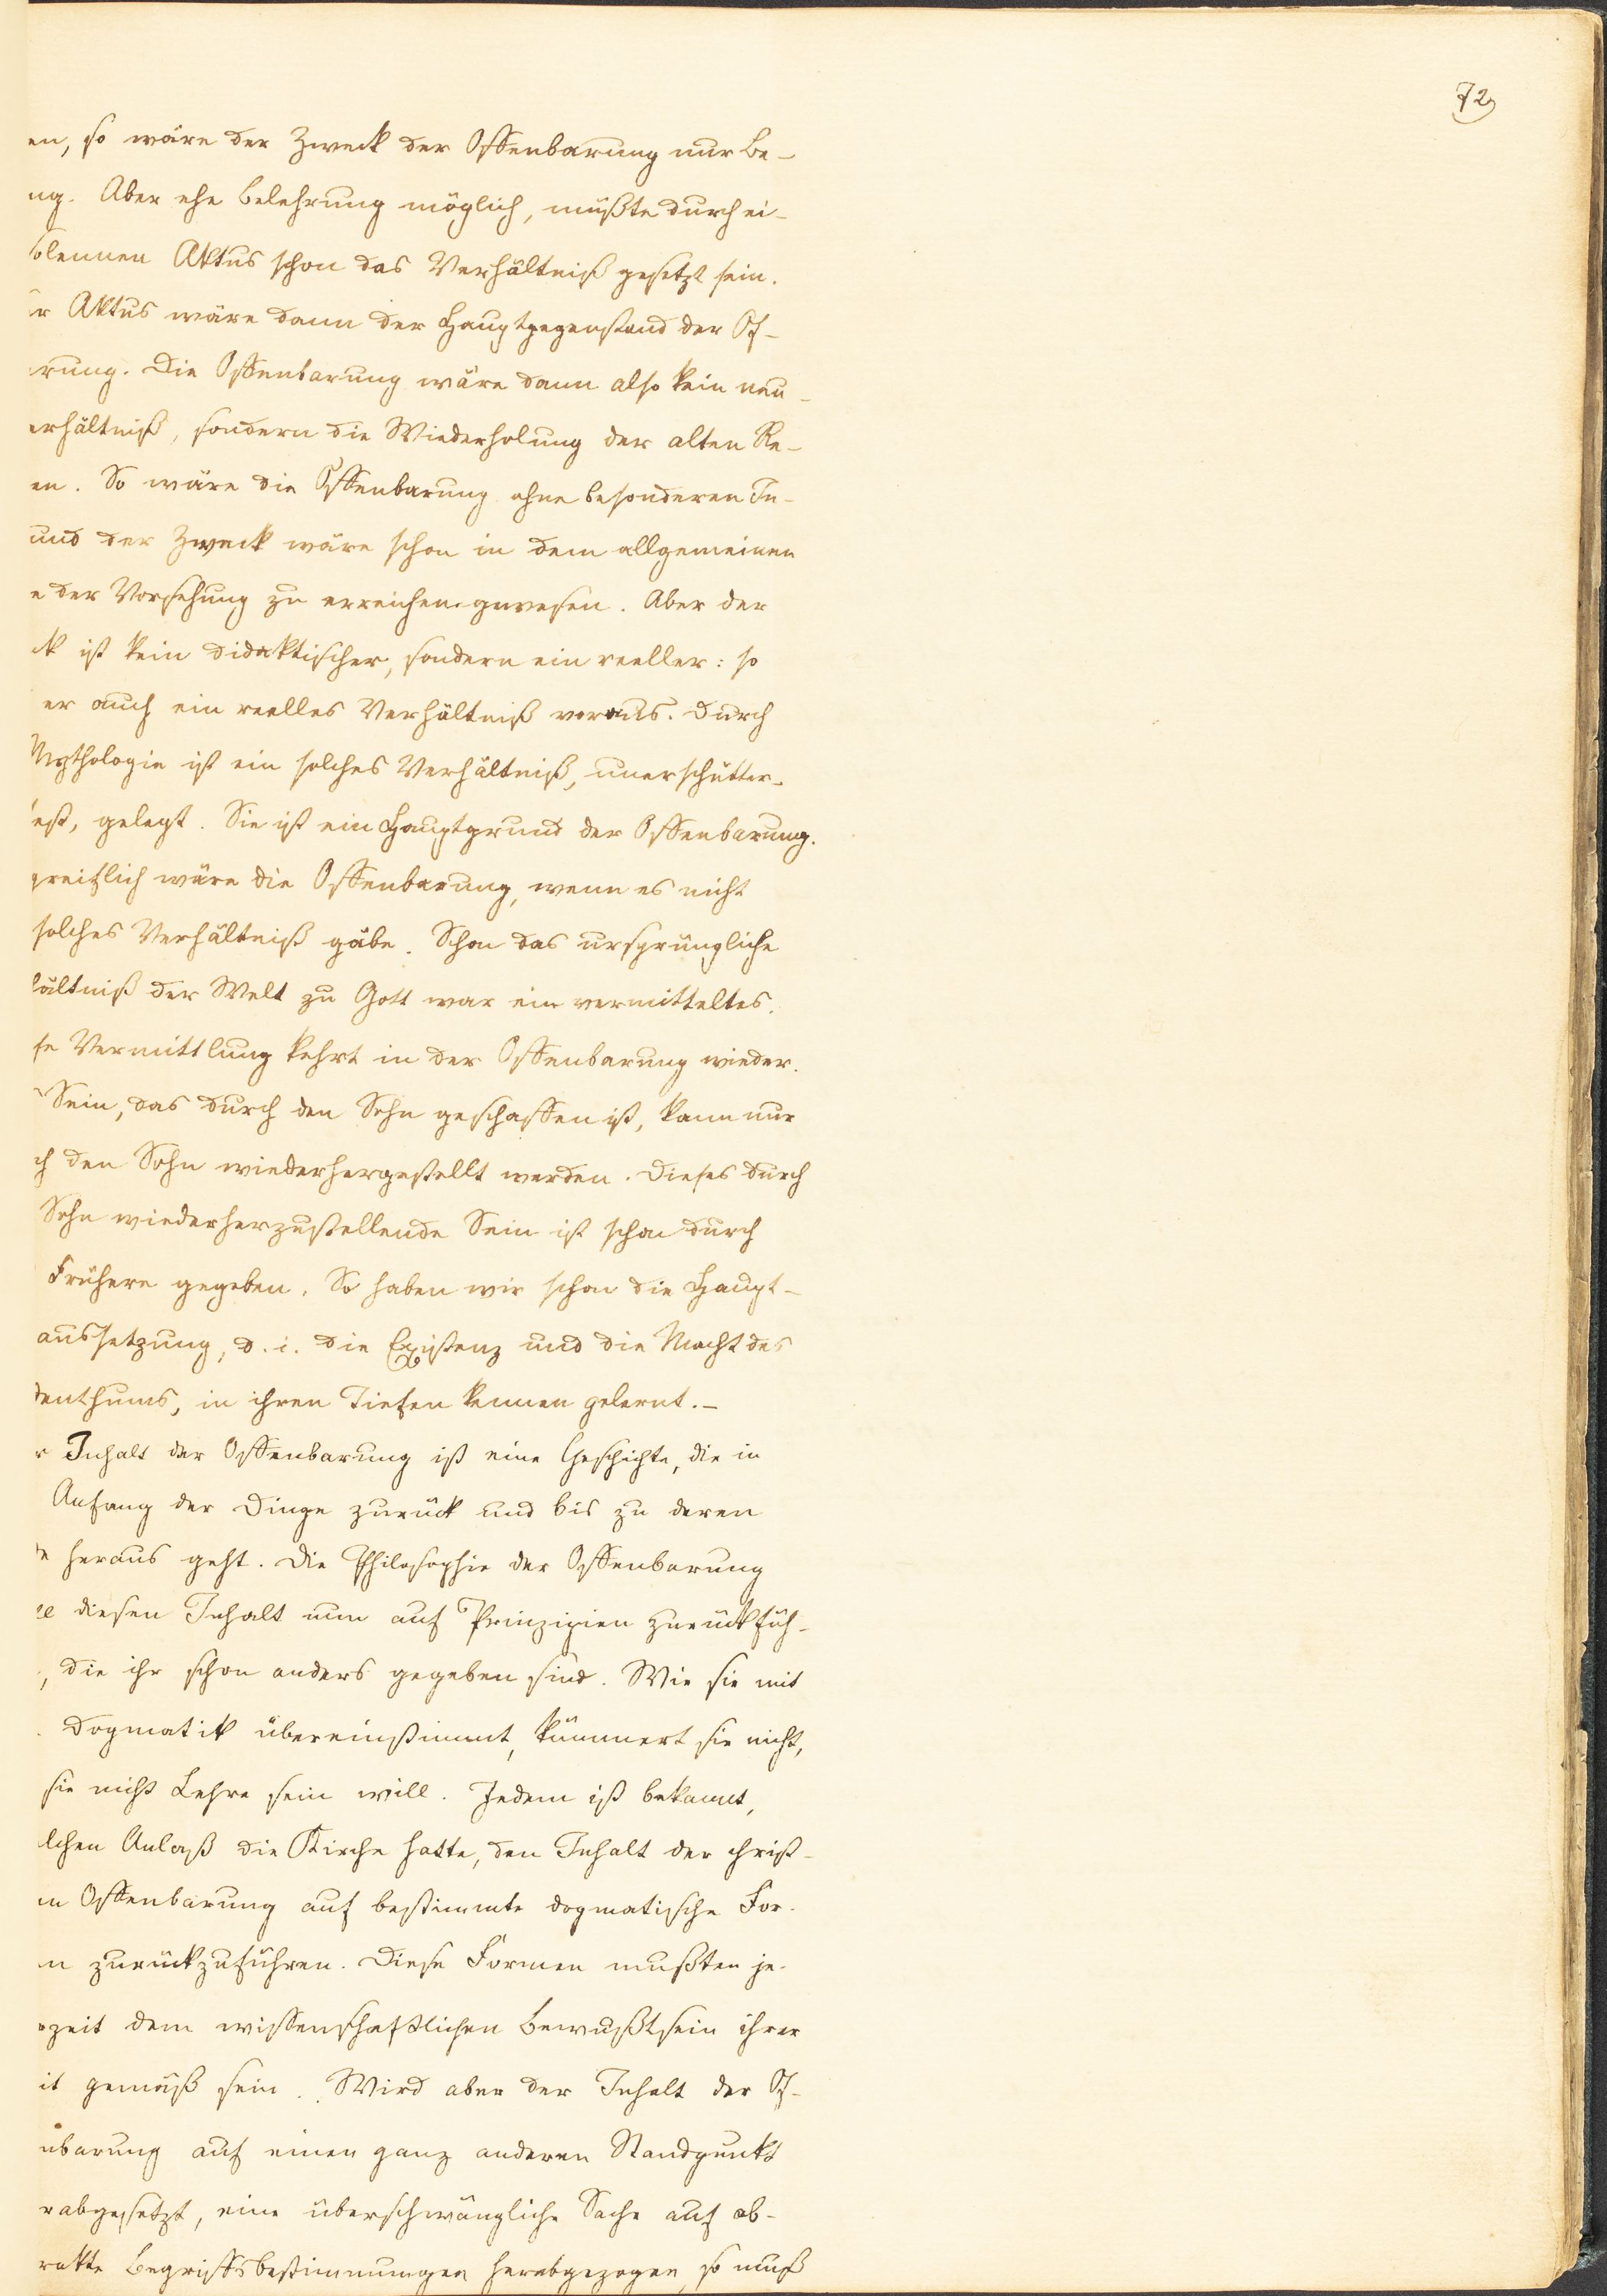 72
en, so wäre der Zweck der Offenbarung nur Be-
ng. Aber ehe Belehrung möglich, müßte durch ei-
solennen Aktus schon das Verhältniß gesetzt sein.
r Aktus wäre dann der Hauptgegenstand der Of-
rung. Die Offenbarung wäre dann also kein neu-
erhältniß, sondern die Wiederholung der alten Re-
en. So wäre die Offenbarung ohne besonderen In-
und der Zweck wäre schon in dem allgemeinen
e der Vorsehung zu erreichen gewesen. Aber der
ck ist kein didaktischer, sondern ein reeller: so
er auch ein reelles Verhältniß voraus. Durch
Mythologie ist ein solches Verhältniß, unerschütter-
fest, gelegt. Sie ist ein Hauptgrund der Offenbarung.
greiflich wäre die Offenbarung, wenn es nicht
solches Verhältniß gäbe. Schon das ursprüngliche
hältniß der Welt zu Gott war ein vermitteltes.
se Vermittlung kehrt in der Offenbarung wieder.
Sein, das durch den Sohn geschaffen ist, kann nur
ch den Sohn wiederhergestellt werden. Dieses durch
Sohn wiederherzustellende Sein ist schon durch
Frühere gegeben. So haben wir schon die Haupt-
aussetzung, d. i. die Existenz und die Macht des
denthums, in ihren Tiefen kennen gelernt.-
r Inhalt der Offenbarung ist eine Geschichte, die in
Anfang der Dinge zurück und bis zu deren
e heraus geht. Die Philosophie der Offenbarung
ll diesen Inhalt nun auf Prinzipien zurückfüh-
, die ihr schon anders gegeben sind. Wie sie mit
Dogmatik übereinstimmt, kümmert sie nicht,
sie nicht Lehre sein will. Jedem ist bekannt,
lchen Anlaß die Kirche hatte, den Inhalt der christ-
n Offenbarung auf bestimmte dogmatische For-
n zurückzuführen. Diese Formen mußten je-
rzeit dem wissenschaftlichen Bewußtsein ihrer
it gemäß sein. Wird aber der Inhalt der Of-
nbarung auf einen ganz anderen Standpunkt
rabgesetzt, eine überschwängliche Sache auf ab-
rakte Begriffsbestimmungen herabgezogen, so muß